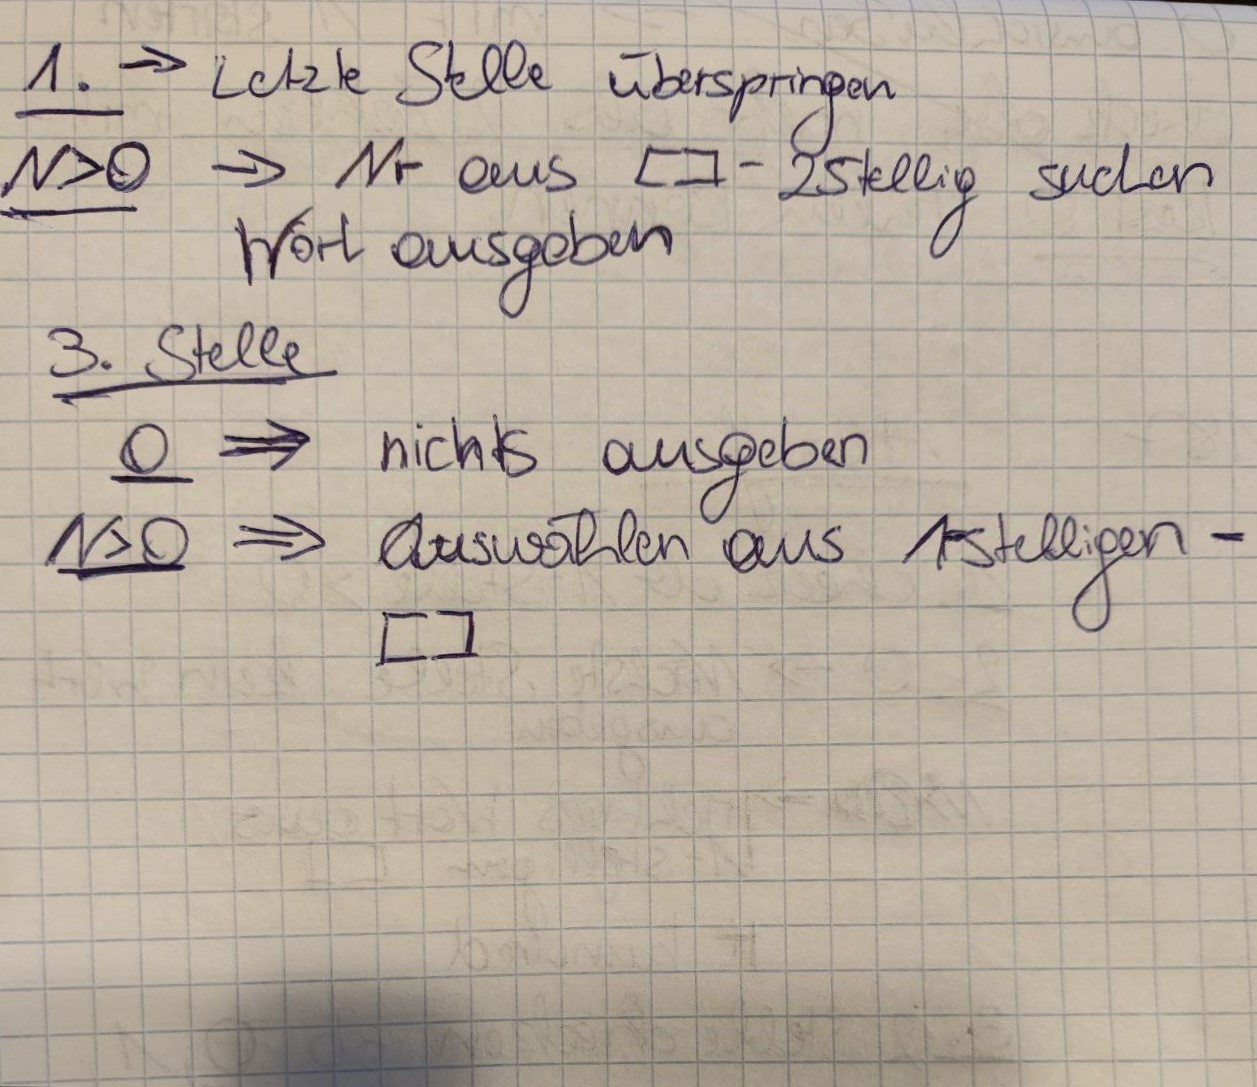 1. → Letzte Stelle überspringen
N>0 → Nr aus [] - 2stellig suchen
Wort ausgeben
3. Stelle
0 ⇒ nichts ausgeben
N>0 ⇒ Auswählen aus 1-stelligen -
[]